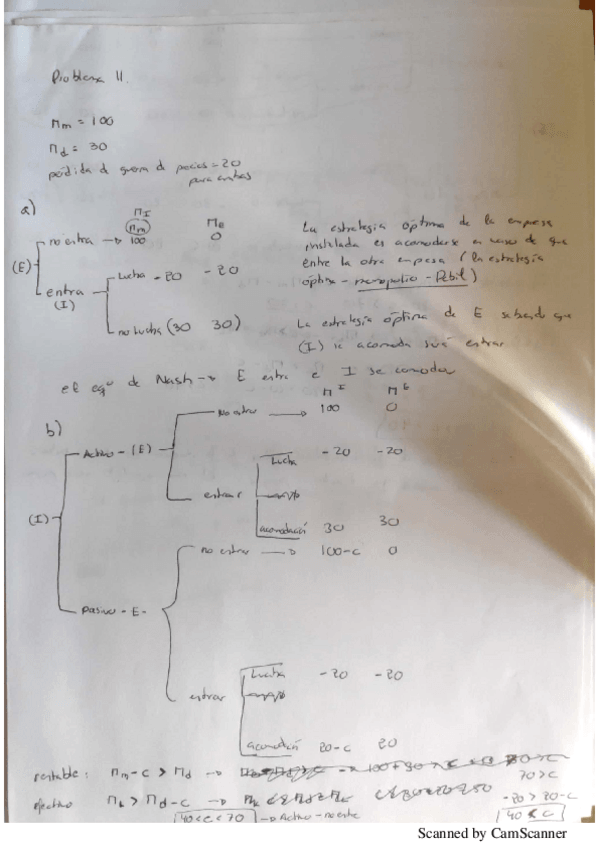 Problema 11.
Πm = 100
Πd = 30
pérdida d guerra de precios = 20
para ambas
a)
ΠI ΠE
Πm
no entra → 100 0
(E)
entra
(I)
Lucha -20 -20
no lucha (30 30)
La estrategia óptima de la empresa
instalada es acomodarse en caso de que
entre la otra empresa (la estrategia
óptima - monopolio - Débil)
La estrategia óptima de E sabiendo que
(I) se acomoda será entrar
el eqº de Nash → E entra e I se acomoda
b)
Π^I Π^E
No entrar → 100 0
Activo - (E)
Lucha -20 -20
entrar
acomodación 30 30
(I)
no entrar → 100-c 0
Pasivo - E -
Lucha -20 -20
entrar
acomodación 20-c 20
rentable: Πm-c > Πd →
70 > c
efectivo Πd-c →
-20 > 20-c
40 < c < 70 → Activo - no entra
40 < c
Scanned by CamScanner